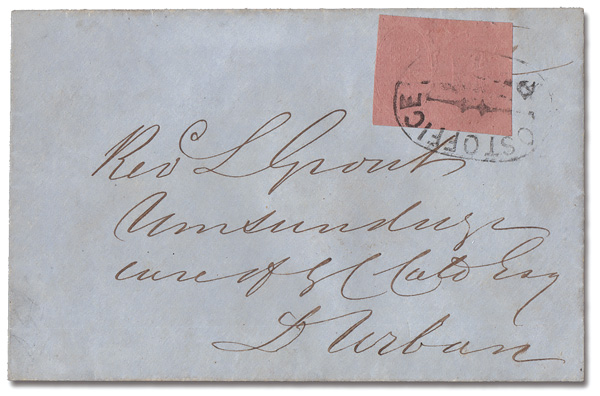 POST OFFICE
Revd L Grout
Umsunduze
care of G C Cato Esq
D'Urban